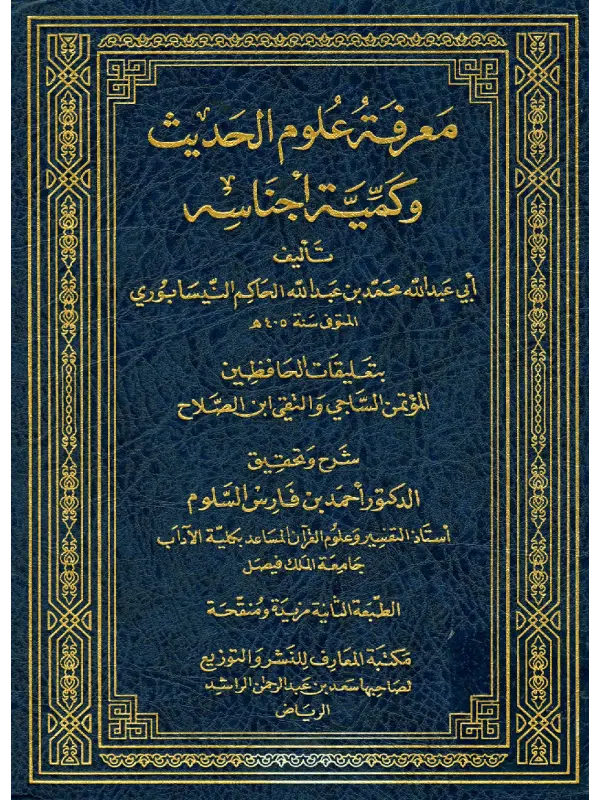 معرفة علوم الحديث
وكمية أجناسه
تأليف
أبي عبدالله محمد بن عبدالله الحاكم النيسابوري
المتوفى سنة ٤٠٥ هـ
بتعليقات الحافظين
المؤتمن الساجي والتقي ابن الصلاح
شرح وتحقيق
الدكتور أحمد بن فارس السلوم
أستاذ التفسير وعلوم القرآن المساعد بكلية الآداب
جامعة الملك فيصل
الطبعة الثانية مزيدة ومنقحة
مكتبة المعارف للنشر والتوزيع
لصاحبها سعد بن عبدالرحمن الراشد
الرياض